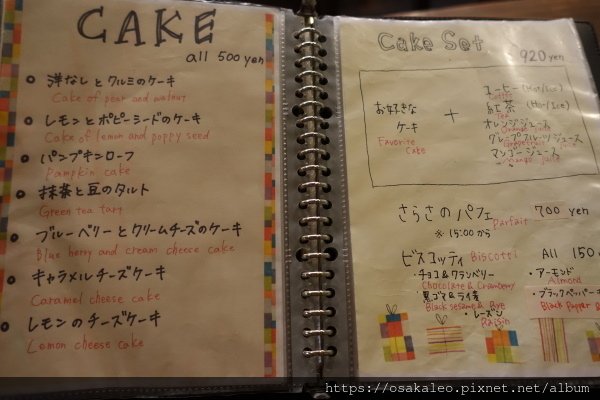 CAKE
all 500 yen
洋なしとクルミのケーキ
Cake of pear and walnut
レモンとポピーシードのケーキ
Cake of lemon and poppy seed
パンプキンローフ
Pampkin cake
抹茶と豆のタルト
Green tea tart
ブルーベリーとクリームチーズのケーキ
Blue berry and cream cheese cake
キャラメルチーズケーキ
Caramel cheese cake
レモンのチーズケーキ
Lemon cheese cake
Cake Set
920 yen
お好きな
ケーキ
Favorite
Cake
+
コーヒー (Hot/Ice)
Coffee
紅茶 (Hot/Ice)
Tea
オレンジジュース
Orange juice
グレープフルーツジュース
Grapefruit juice
マンゴージュース
Mango juice
さらさのパフェ Parfait 700 yen
※ 15:00から
ビスコッティ Biscotti All 150
・チョコ&クランベリー
Chocolate & Cranberry
黒ゴマ&ライ麦
Black sesame & Rye
・レーズン
Raisin
・アーモンド
Almond
・ブラックペッパー
Black Pepper &
https://osakaleo.pixnet.net/album